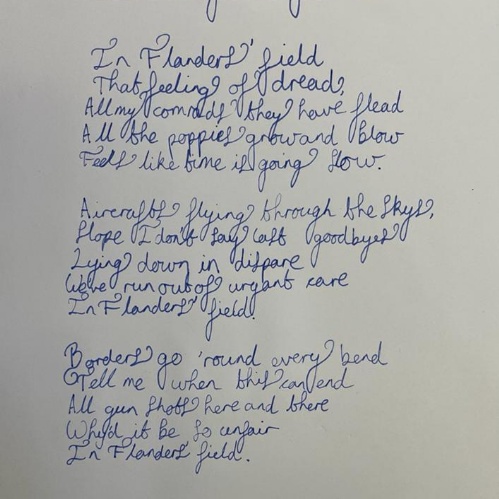 In Flanders' field
That feeling of dread,
All my comrads they have flead
All the poppies grow and blow
Feels like time is going slow.
Aircrafts flying through the skys,
Hope I don't say last goodbyes
Lying down in dispare
We've run out of urgant care
In Flanders' field.
Borders go 'round every bend
Tell me when this can end
All gun shots here and there
Why'd it be so unfair
In Flanders' field.